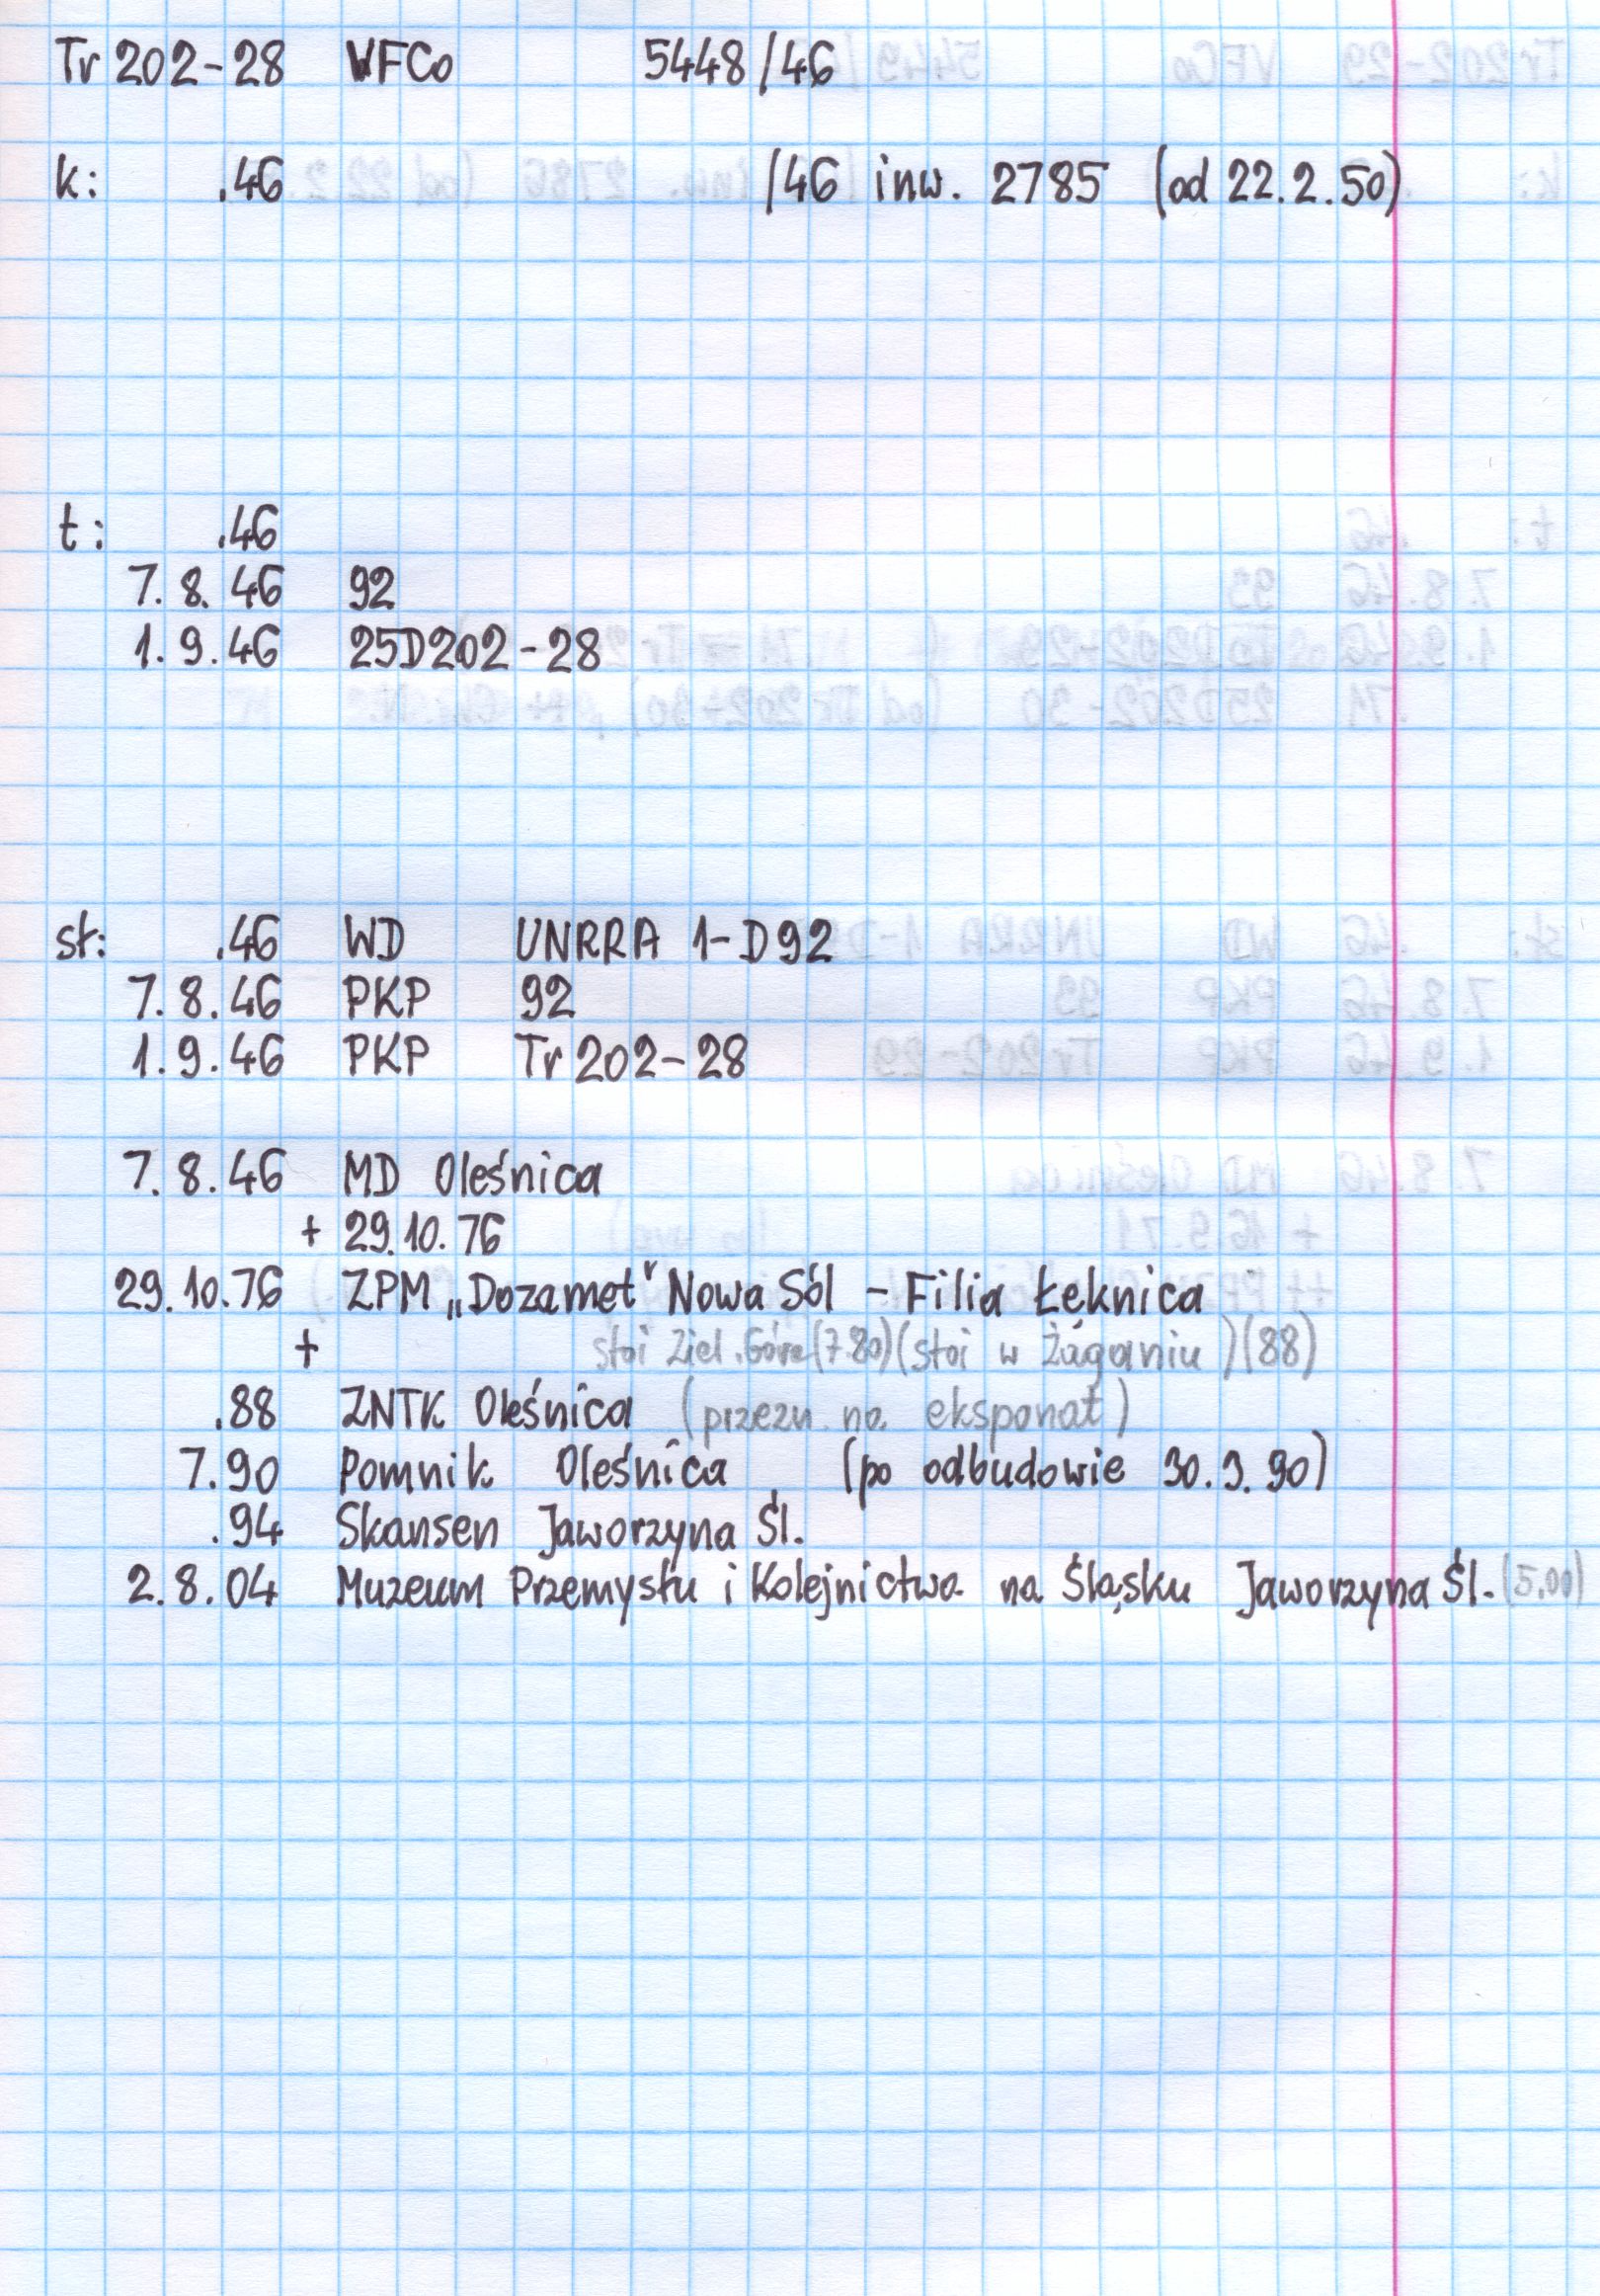 Tr 202-28 VFCo 5448/46
k: .46 /46 inw. 2785 (od 22.2.50)
t: .46
7.8.46 92
1.9.46 25D202-28
st: .46 WD UNRRA 1-D92
7.8.46 PKP 92
1.9.46 PKP Tr 202-28
7.8.46 MD Oleśnica
+ 29.10.76
29.10.76 ZPM „Dozamet" Nowa Sól - Filia Łęknica
+ stoi Ziel. Góra (7.80) (stoi w Żaganiu) (88)
.88 ZNTK Oleśnica (przezn. na eksponat)
7.90 Pomnik Oleśnica (po odbudowie 30.3.90)
.94 Skansen Jaworzyna Śl.
2.8.04 Muzeum Przemysłu i Kolejnictwa na Śląsku Jaworzyna Śl. (5.00)